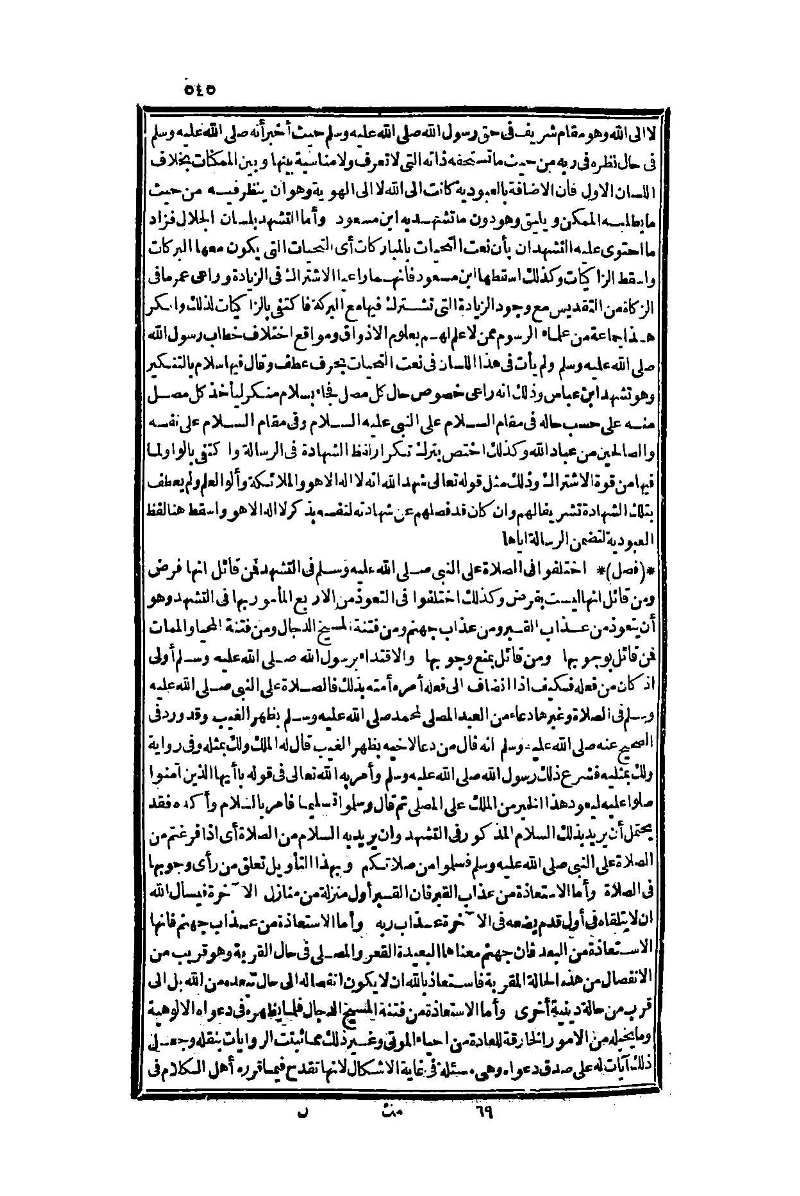 ٥٤٥
لا الى الله وهو مقام شريف فى حق رسول الله صلى الله عليه وسلم حيث أخبر أنه صلى الله عليه وسلم
فى حال نظره فى ربه من حيث ما تستحقه ذاته التى لا تعرف ولا مناسبة بينها وبين الممكنات بخلاف
اللسان الاول فان الاضافة بالعبودية كانت الى الله لا الى الهوية وهو ان ينظر فيه من حيث
ما يطلبه الممكن ويليق وهو دون ما تشهد به ابن مسعود وأما التشهد بلسان الجلال فزاد
ما احتوى عليه التشهدان بأن نعت التحيات بالمباركات أى التحيات التى يكون معها البركات
واسقط الزاكيات وكذلك اسقطها ابن مسعود فانهما راعيا الاشتراك فى الزيادة وراعى عمر مافى
الزكاة من التقديس مع وجود الزيادة التى تشترك فيها مع البركة فاكتفى بالزاكيات لذلك وانكر
هذا جماعة من علماء الرسوم ممن لا علم لهم بعلوم الاذواق ومواقع اختلاف خطاب رسول الله
صلى الله عليه وسلم ولم يأت فى هذا اللسان فى نعت التحيات بحرف عطف وقال فيها سلام بالتنكير
وهو تشهد ابن عباس وذلك انه راعى خصوص حال كل مصل فجاء بسلام منكر ليأخذ كل مصل
منه على حسب حاله فى مقام السلام على النبى عليه السلام وفى مقام السلام على نفسه
والصالحين من عباد الله وكذلك اختص بترك تكرار لفظ الشهادة فى الرسالة واكتفى بالواو لما
فيها من قوة الاشتراك وذلك مثل قوله تعالى شهد الله انه لا اله الا هو والملائكة وألوا العلم ولم يعطف
بتلك الشهادة تشريفا لهم وان كان قد فصلهم عن شهادته لنفسه بذكر لا اله الا هو واسقط هنا لفظ
العبودية لتضمن الرسالة اياها
*(فصل)* اختلفوا فى الصلاة على النبى صلى الله عليه وسلم فى التشهد فمن قائل انها فرض
ومن قائل انها ليست بفرض وكذلك اختلفوا فى التعوذ من الاربع المأمور بها فى التشهد وهو
أن يتعوذ من عذاب القبر ومن عذاب جهنم ومن فتنة المسيح الدجال ومن فتنة المحيا والممات
فمن قائل بوجوبها ومن قائل بمنع وجوبها والاقتداء برسول الله صلى الله عليه وسلم أولى
اذ كان من فعله فكيف اذا انضاف الى فعله أمره أمته بذلك فالصلاة على النبى صلى الله عليه
وسلم فى الصلاة وغيرها دعاء من العبد المصلى لمحمد صلى الله عليه وسلم بظهر الغيب وقد ورد فى
الصحيح عنه صلى الله عليه وسلم انه قال من دعا لاخيه بظهر الغيب قال له الملك ولك بمثله وفى رواية
ولك بمثليه فشرع ذلك رسول الله صلى الله عليه وسلم وأمر به الله تعالى فى قوله يا أيها الذين آمنوا
صلوا عليه ليعود هذا الخير من الملك على المصلى ثم قال وسلموا تسليما فامر بالسلام وأكده فقد
يحتمل أن يريد بذلك السلام المذكور فى التشهد وان يريد به السلام من الصلاة أى اذا فرغتم من
الصلاة على النبى صلى الله عليه وسلم فسلموا من صلاتكم وبهذا التأويل تعلق من رأى وجوبها
فى الصلاة وأما الاستعاذة من عذاب القبر فان القبر أول منزلة من منازل الآخرة فيسأل الله
ان لا يتلقاه فى أول قدم يضعه فى الآخرة عذاب ربه وأما الاستعاذة من عذاب جهنم فانها
الاستعاذة من البعد فان جهنم معناها البعيدة القعر والمصلى فى حال القربة وهو قريب من
الانفصال من هذه الحالة المقربة فاستعاذ بالله ان لا يكون انفصاله الى حال تبعده من الله بل الى
قرب من حالة دينية أخرى وأما الاستعاذة من فتنة المسيح الدجال فلما يظهره فى دعواه الالوهية
وما يخيله من الامور الخارقة للعادة من احياء الموتى وغير ذلك مما ثبتت الروايات بنقله وجعل
ذلك آيات له على صدق دعواه وهى مسئلة فى غاية الاشكال لانها تقدح فيما قرره أهل الكلام فى
٦٩ مث ل